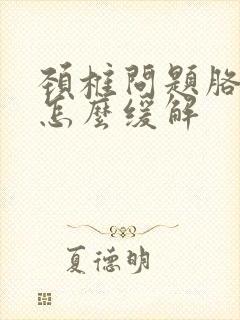 頸椎問題胳
怎麼缓解
夏德明